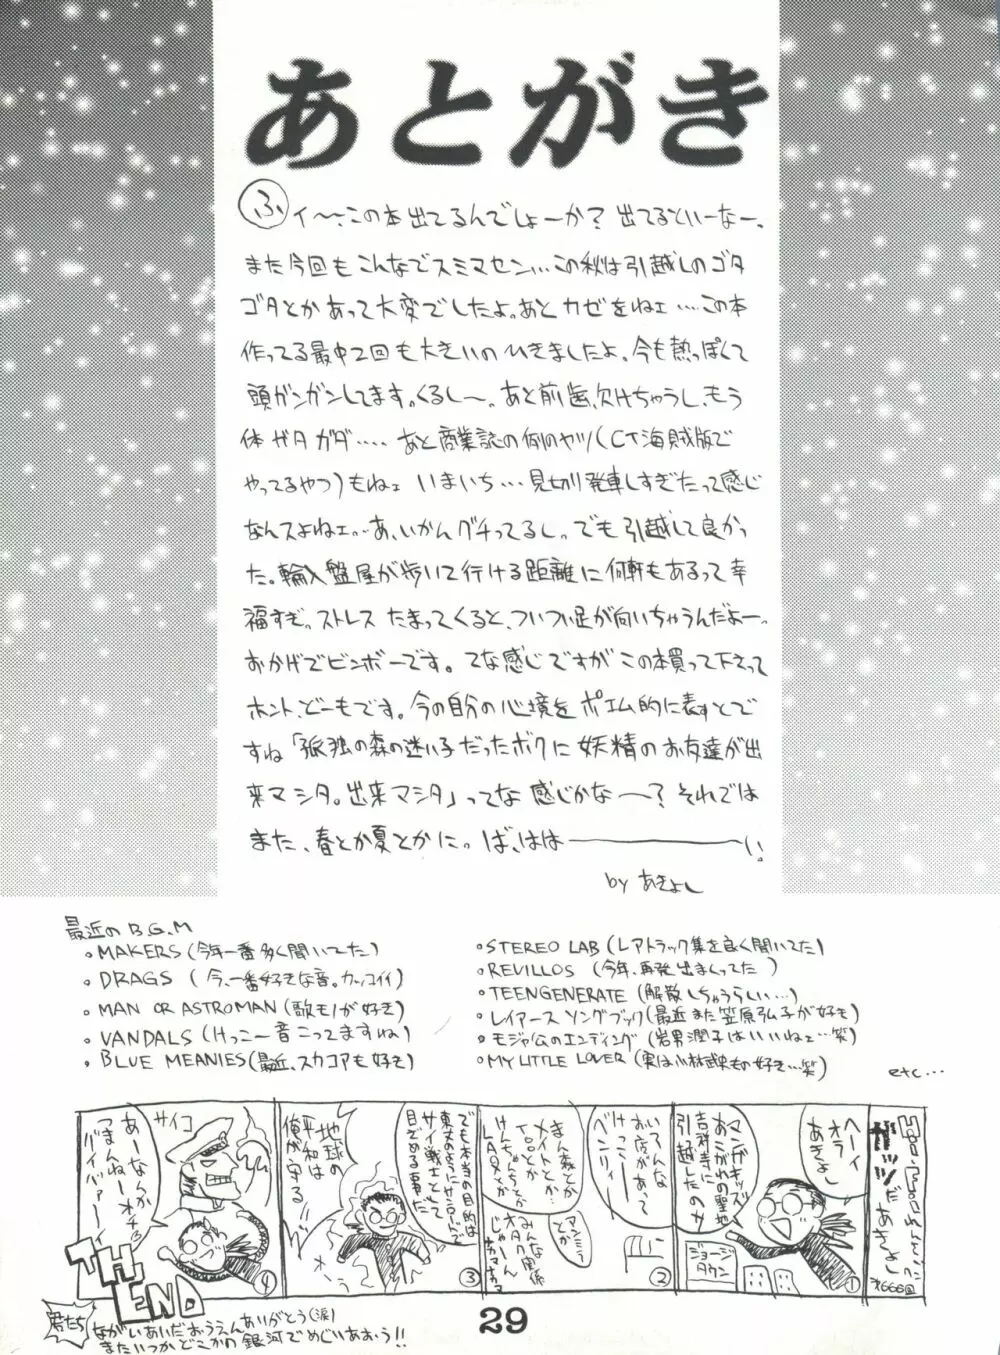 あとがき
ふィ〜、この本出てるんでしょーか？出てるといーなー、
また今回もこんなでスミマセン…この秋は引越しのゴタ
ゴタとかあって大変でしたよ。あとカゼをねェ…この本
作ってる最中2回も大きいのひきましたよ、今も熱っぽくて
頭ガンガンしてます。くるし〜。あと前歯、欠けちゃうし、もう
体ガタガタ…。あと商業誌の例のヤツ(CT海賊版で
やってるやつ)もねェいまいち…見切り発車しすぎたって感じ
なんスよねェ…あ、いかんグチってるし。でも引越して良かっ
た。輸入盤屋が歩いて行ける距離に何軒もあるって幸
福すぎ。ストレスたまってくると、ついつい足が向いちゃうんだよー。
おかげでビンボーです。てな感じですがこの本買って下さって
ホント、どーもです。今の自分の心境をポエム的に表すとで
すね「孤独の森の迷い子だったボクに妖精のお友達が出
来マシタ。出来マシタ」ってな感じかな〜？それでは
また、春とか夏とかに。ば、はは――――い!
by あきよし
最近のB.G.M
・MAKERS(今年一番多く聞いてた)
・DRAGS (今、一番好きな音。カッコイイ)
・MAN OR ASTROMAN(歌モノが好き)
・VANDALS(けっこー音こってますね)
・BLUE MEANIES(最近、スカコアも好き)
・STEREO LAB(レアトラック集を良く聞いてた)
・REVILLOS (今年、再発出まくってた)
・TEENGENERATE(解散しちゃうらしい…)
・レイアースソングブック(最近また笠原弘子が好も)
・モジャ公のエンディング(岩男潤子はいいねェ…笑)
・MY LITTLE LOVER(実は小林武史もの好き…笑)
etc…
ガッツだあきよし
オ666回
ヘーイ
オラ
あきよし
マンガキッズ
あこがれの聖地
吉祥寺に
引越したのサ
ジョージ
タウン
①
いろんな
お店があって
けっこー
ベンリィー
まん森とか
メイトとか…
TOPOとか
けんちゃんちとか
LAOXとか
マンミーとか
みんな
オタク関係
じゃーん
②
でも本当の目的は
東丈のように吉祥寺で
サイ戦士として
目ざめる事だ
③
地球の
平和は
俺が守る!!
メ・ラ
サイコ
あーなんか
つまんねーオチ
バイバァーイ
④
TH END
君たち
ながいあいだおうえんありがとう(涙)
またいつかどこかの銀河でめぐりあおう!!
29